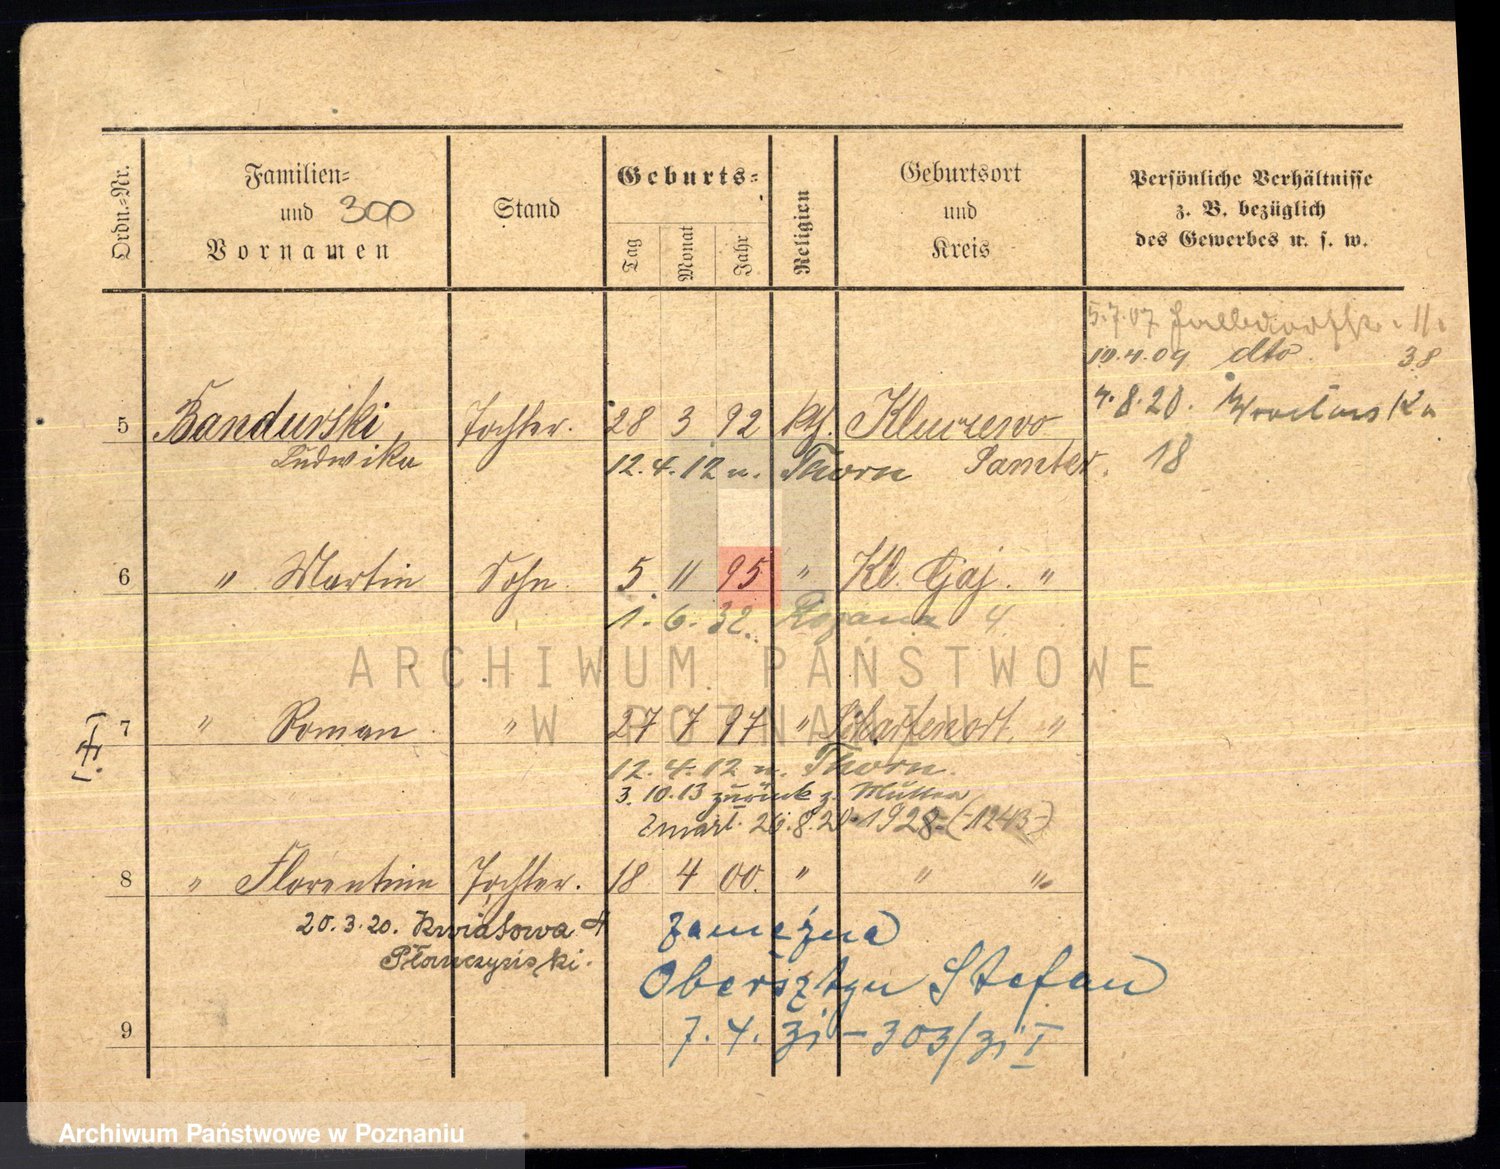 Ordn.-Nr.
Familien-
und 300
Vornamen
Stand
Geburts-
Tag
Monat
Jahr
Religion
Geburtsort
und
Kreis
Persönliche Verhältnisse
z. B. bezüglich
des Gewerbes u. s. w.
5.7.07 11.
10.4.09 dto 38
4.8.20.
18
5 Bandurski Tochter. 28 3 92 kth.
Ludwika 12.4.12 n. Thorn Samter.
6 " Martin Sohn 5. 11 95 " Kl. Gaj. "
1.6.32. 4
7 " Roman " 27 7 97 " Scharfenort. "
12.4.12 n. Thorn.
3.10.13 zurück z. Mutter
zmarł 1928 (1243)
8 " Florentine Tochter. 18 4 00. " " "
20.3.20. Kwiatowa
zamężna
Obersztyn Stefan
9 7.4.31 – 303/31 I
ARCHIWUM PAŃSTWOWE
W POZNANIU
Archiwum Państwowe w Poznaniu